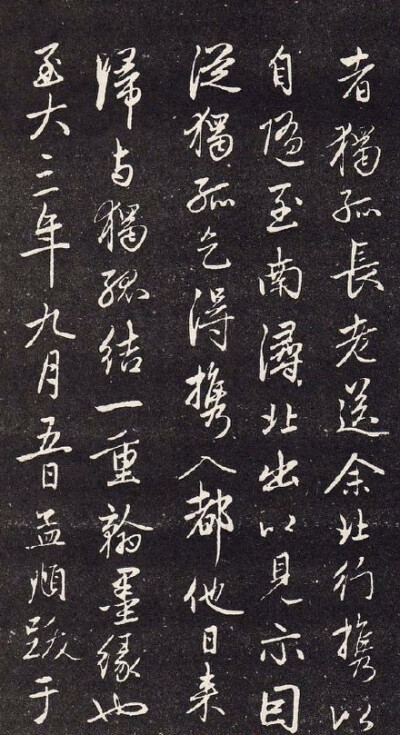 者獨孤長老送余北行携以
自隨至南潯北出以見示因
從獨孤乞得携入都他日来
歸与獨孤結一重翰墨緣也
至大三年九月五日孟頫跋于